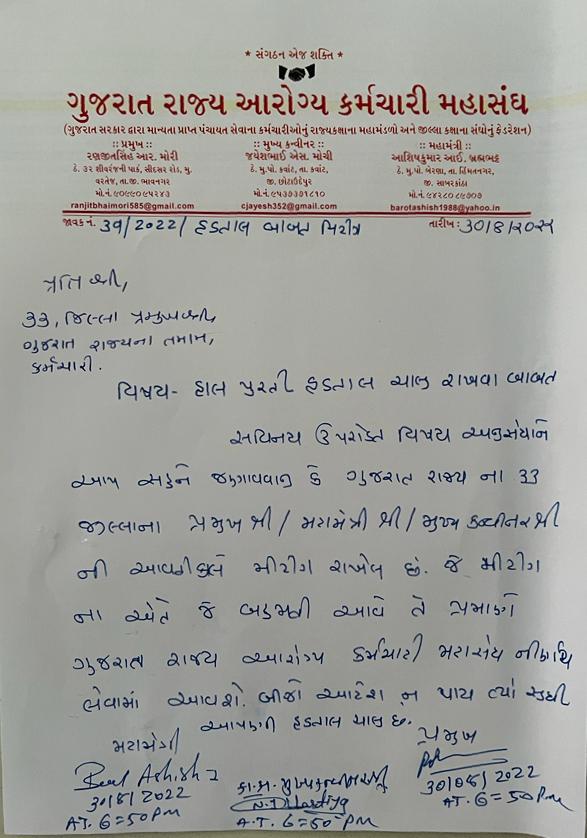 * સંગઠન એજ શક્તિ *
ગુજરાત રાજ્ય આરોગ્ય કર્મચારી મહાસંઘ
(ગુજરાત સરકાર દ્વારા માન્યતા પ્રાપ્ત પંચાયત સેવાના કર્મચારીઓનું રાજ્યકક્ષાના મહામંડળો અને જીલ્લા કક્ષાના સંઘોનું ફેડરેશન)
:: પ્રમુખ :: :: મુખ્ય કન્વીનર :: :: મહામંત્રી ::
રણજીતસિંહ આર. મોરી જયેશભાઈ એસ. મોચી આશિષકુમાર આઈ. બ્રહ્મભટ્ટ
ઠે. ૩૨ શીવરંજની પાર્ક, સીદસર રોડ, મુ. ઠે. મુ.પો. કવાંટ, તા. કવાંટ, ઠે. મુ.પો. બેરણા, તા. હિંમતનગર,
વરતેજ, તા.જી. ભાવનગર જી. છોટાઉદેપુર જી. સાબરકાંઠા
મો.નં. ૯૦૯૯૦૯૫૨૪૩ મો.નં. ૯૫૩૭૭૭૧૮૧૦ મો.નં. ૯૪૨૮૦૮૯૭૦૭
ranjitbhaimori585@gmail.com cjayesh352@gmail.com barotashish1988@yahoo.in
જાવક નં. 39/2022/ હડતાલ બાબત તારીખ : 30/8/૨૦૨૨
પ્રતિ શ્રી,
33, જિલ્લા પ્રમુખશ્રી,
ગુજરાત રાજ્યના તમામ,
કર્મચારી.
વિષય- હાલ પુરતી હડતાલ ચાલુ રાખવા બાબત
સવિનય ઉપરોક્ત વિષય અનુસંધાને
આપ સહુને જણાવવાનુ કે ગુજરાત રાજ્ય ના 33
જીલ્લાના પ્રમુખ શ્રી / મહામંત્રી શ્રી / મુખ્ય કન્વીનર શ્રી
ની આવતીકાલે મીટીગ રાખેલ છે. જે મીટીગ
ના અંતે જે બહુમતી આવે તે પ્રમાણે
ગુજરાત રાજ્ય આરોગ્ય કર્મચારી મહાસંઘ નીર્ણય
લેવામાં આવશે. બીજો આદેશ ન થાય ત્યાં સુધી
આપણી હડતાલ ચાલુ છે.
મહામંત્રી પ્રમુખ
Ashish
30/8/2022 30/08/2022
AT. 6=50 Pm A.T. 6=50 Pm AT. 6=50 Pm